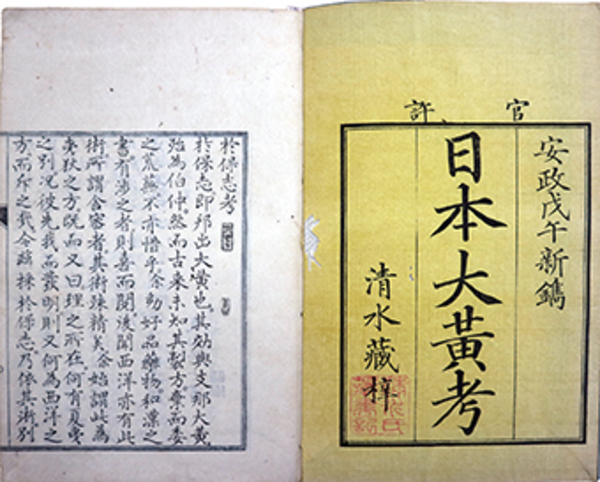 官許
安政戊午新鐫
日本大黃考
清水藏梓
於保志考
於保志即邦出大黃也其効與支那大黃
殆為伯仲然而古来未知其製方棄而委
之荒蕪不亦惜乎余幼好品藥物和漢之
書有涉之者則喜而閱後聞西洋亦有此
術所謂舍密者其術殊精矣余始謂此為
夷狄之方既而又曰理之所在何有夏夷
之別况彼先我而發明則又何為西洋之
方而斥之哉今採於保志乃依其術別